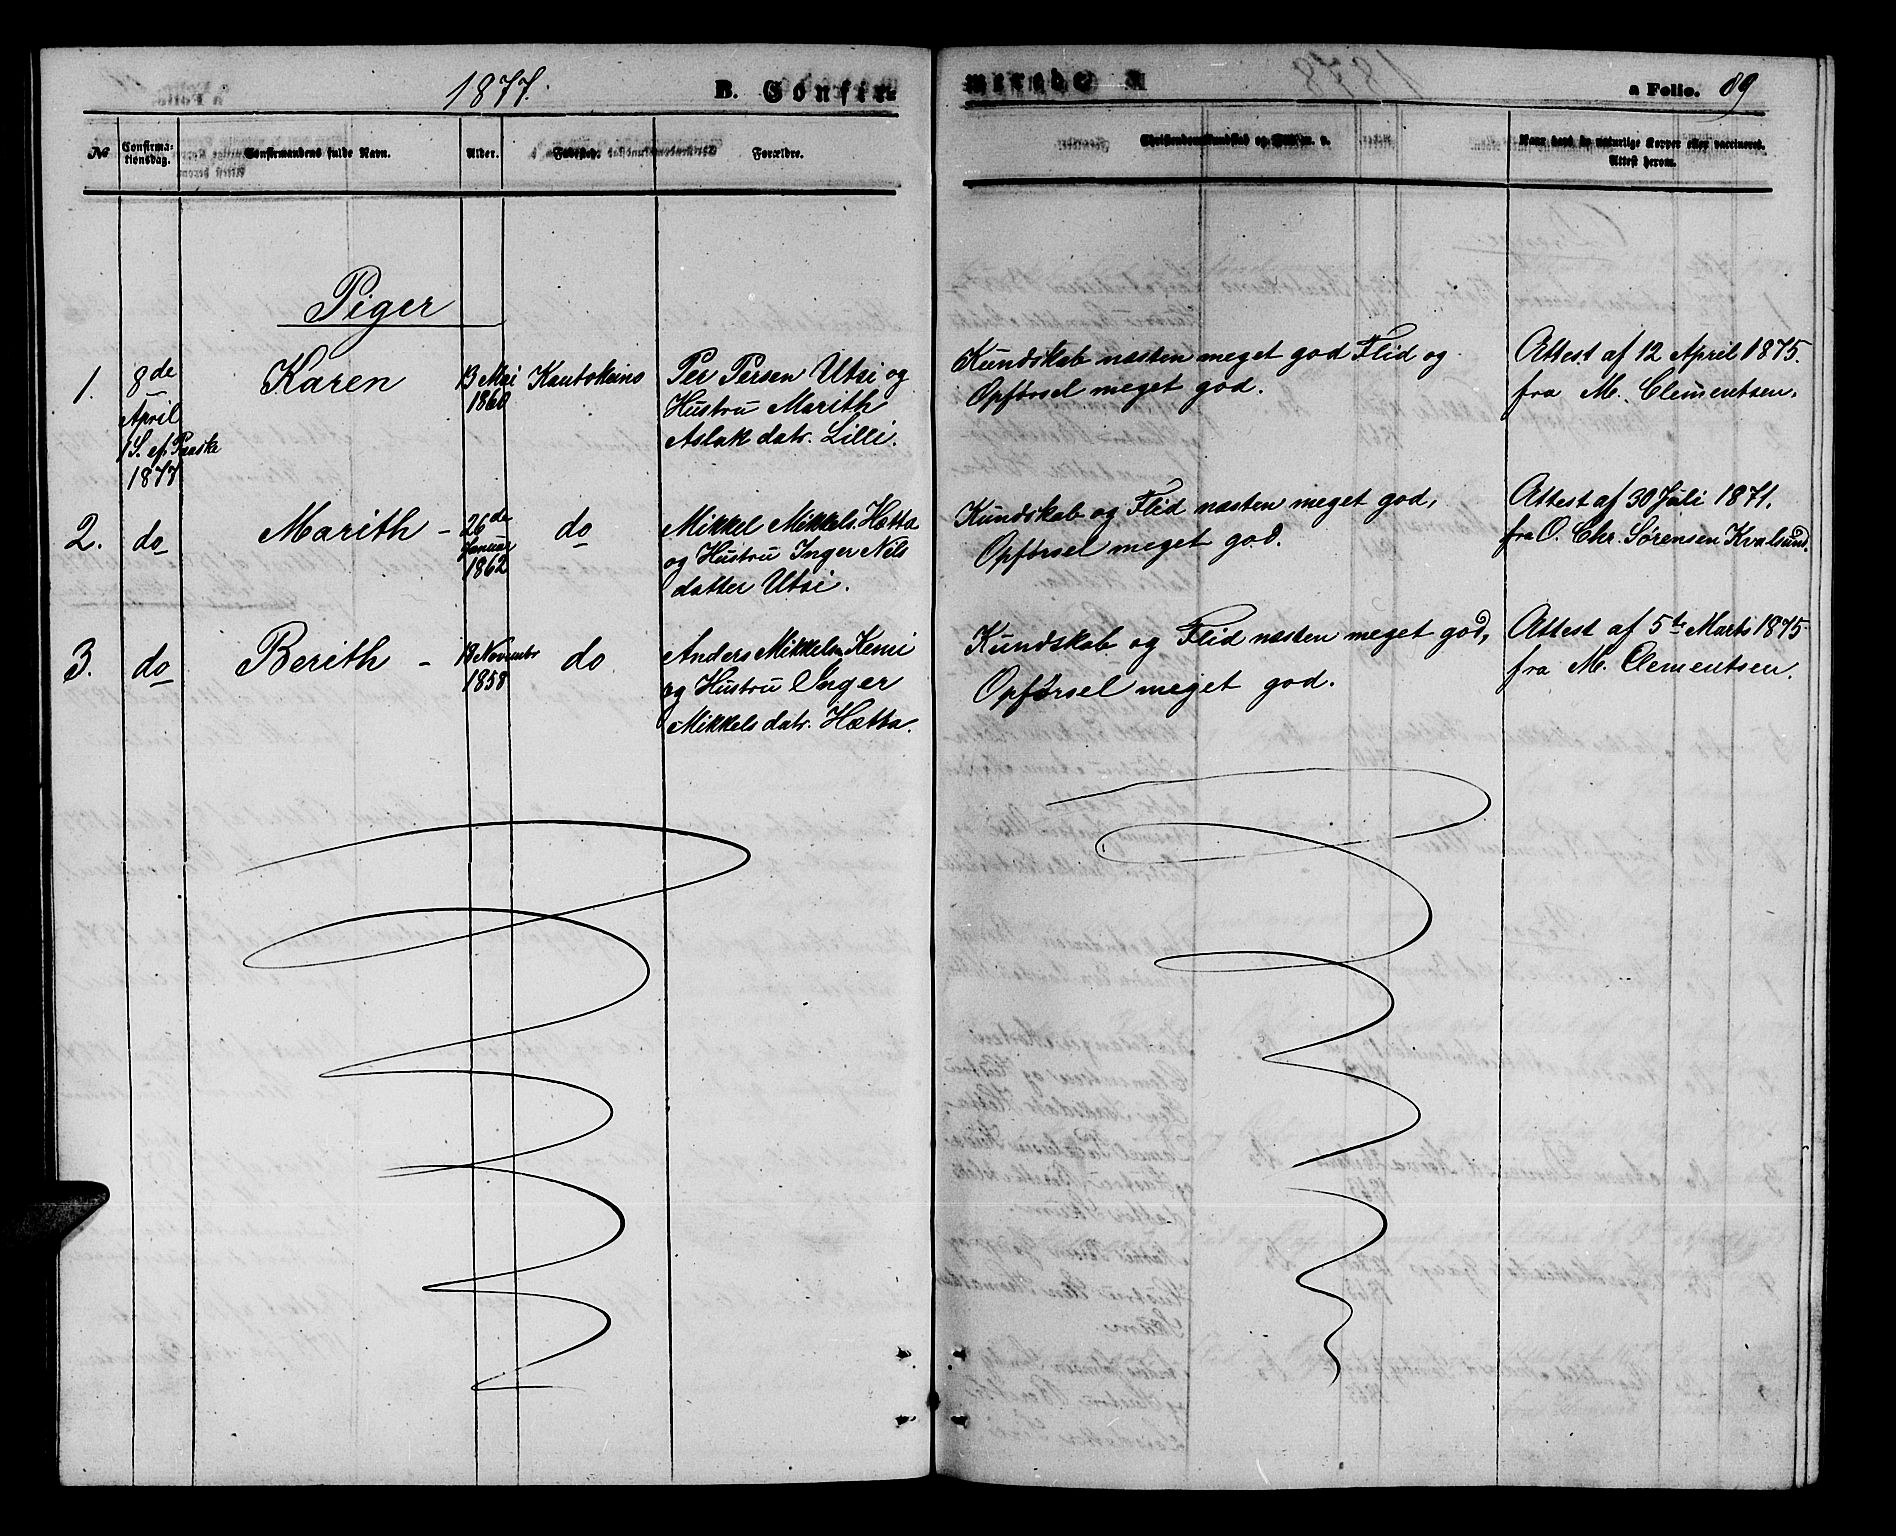 1877.
B. Confir-
merede
a Folio. 89
No
Confirma-
tionsdag.
Confirmandens fulde Navn.
Alder.
Fødested.
Forældre.
Christendomskundskab og Flid m. v.
Naar havt de naturlige Kopper eller vaccineret.
Attest herom.
Piger
1.
8de
April
1 S. ef. Paaske
1877
Karen
13 Mai
1860
Kautokeino
Per Persen Utsi og
Hustru Marith
Aslak datr. Lilli.
Kundskab næsten meget god Flid og
Opførsel meget god.
Attest af 12 April 1875.
fra M. Clementsen.
2.
do
Marith -
26de
Januar
1862
do
Mikkel Mikkels. Hætta
og Hustru Inger Nils
datter Utsi.
Kundskab og Flid næsten meget god,
Opførsel meget god.
Attest af 30 Juli 1871.
fra O. Chr. Sørensen Kvalsund.
3.
do
Berith -
13 Novembr
1858
do
Anders Mikkelsen Kemi
og Hustru Inger
Mikkels datr. Hætta.
Kundskab og Flid næsten meget god,
Opførsel meget god.
Attest af 5te Marts 1875.
fra M. Clementsen.